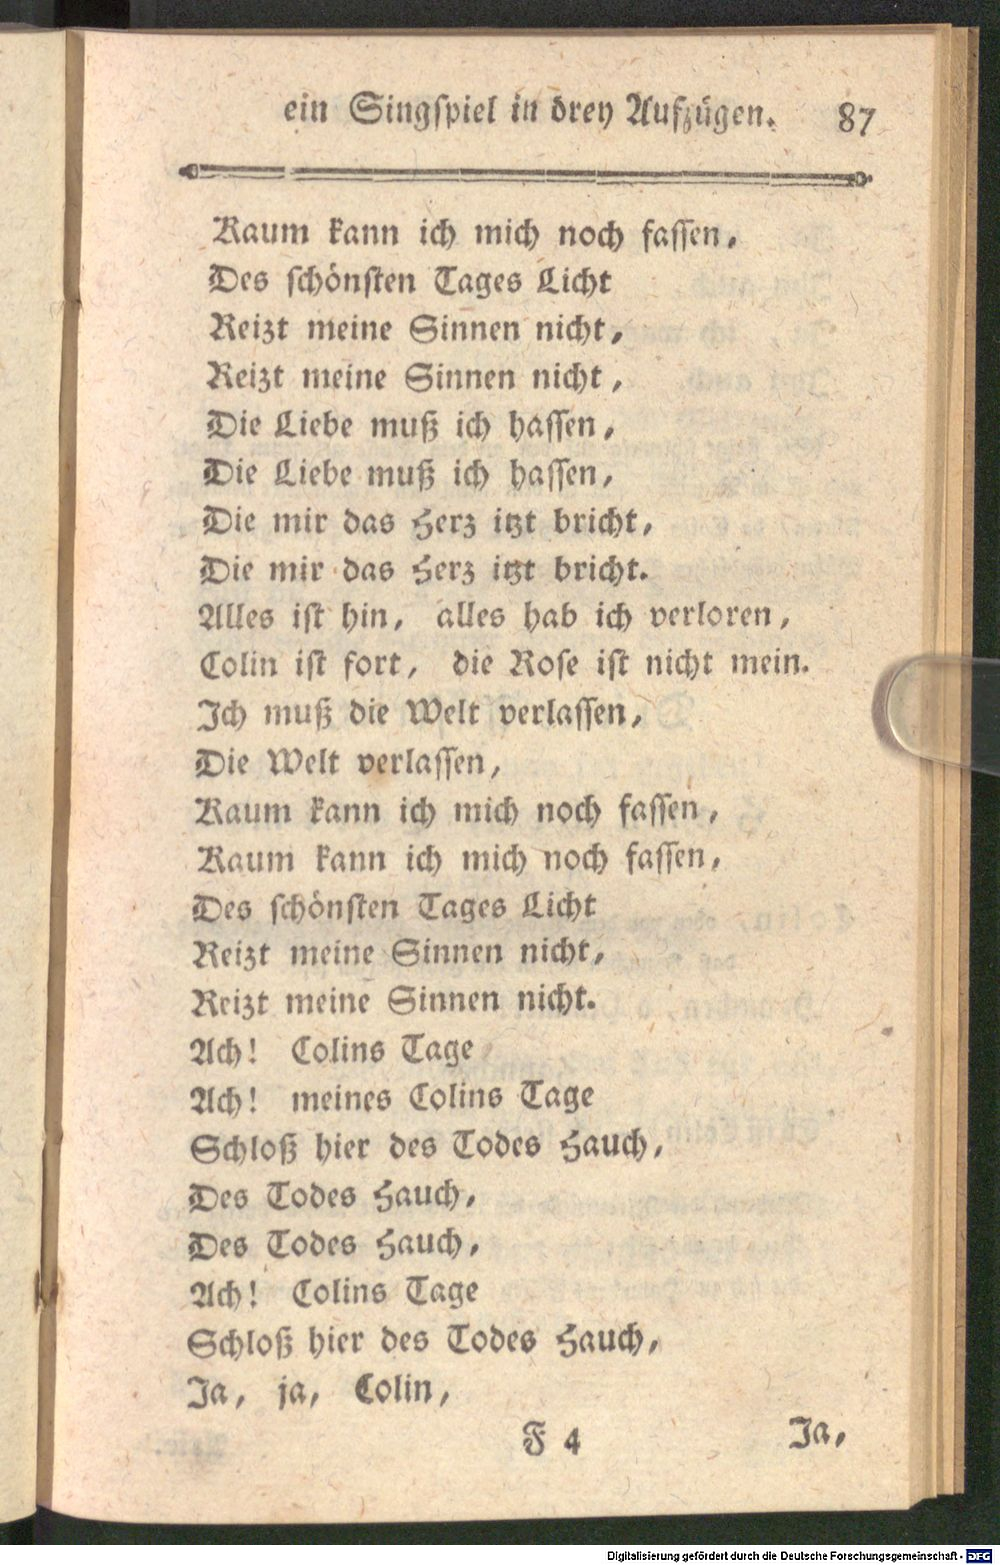 ein Singspiel in drey Aufzügen. 87
Kaum kann ich mich noch fassen,
Des schönsten Tages Licht
Reizt meine Sinnen nicht,
Reizt meine Sinnen nicht,
Die Liebe muß ich hassen,
Die Liebe muß ich hassen,
Die mir das Herz itzt bricht,
Die mir das Herz itzt bricht.
Alles ist hin, alles hab ich verloren,
Colin ist fort, die Rose ist nicht mein.
Ich muß die Welt verlassen,
Die Welt verlassen,
Kaum kann ich mich noch fassen,
Kaum kann ich mich noch fassen,
Des schönsten Tages Licht
Reizt meine Sinnen nicht,
Reizt meine Sinnen nicht.
Ach! Colins Tage
Ach! meines Colins Tage
Schloß hier des Todes Hauch,
Des Todes Hauch,
Des Todes Hauch,
Ach! Colins Tage
Schloß hier des Todes Hauch,
Ja, ja, Colin,
F 4 Ja,
Digitalisierung gefördert durch die Deutsche Forschungsgemeinschaft - DFG